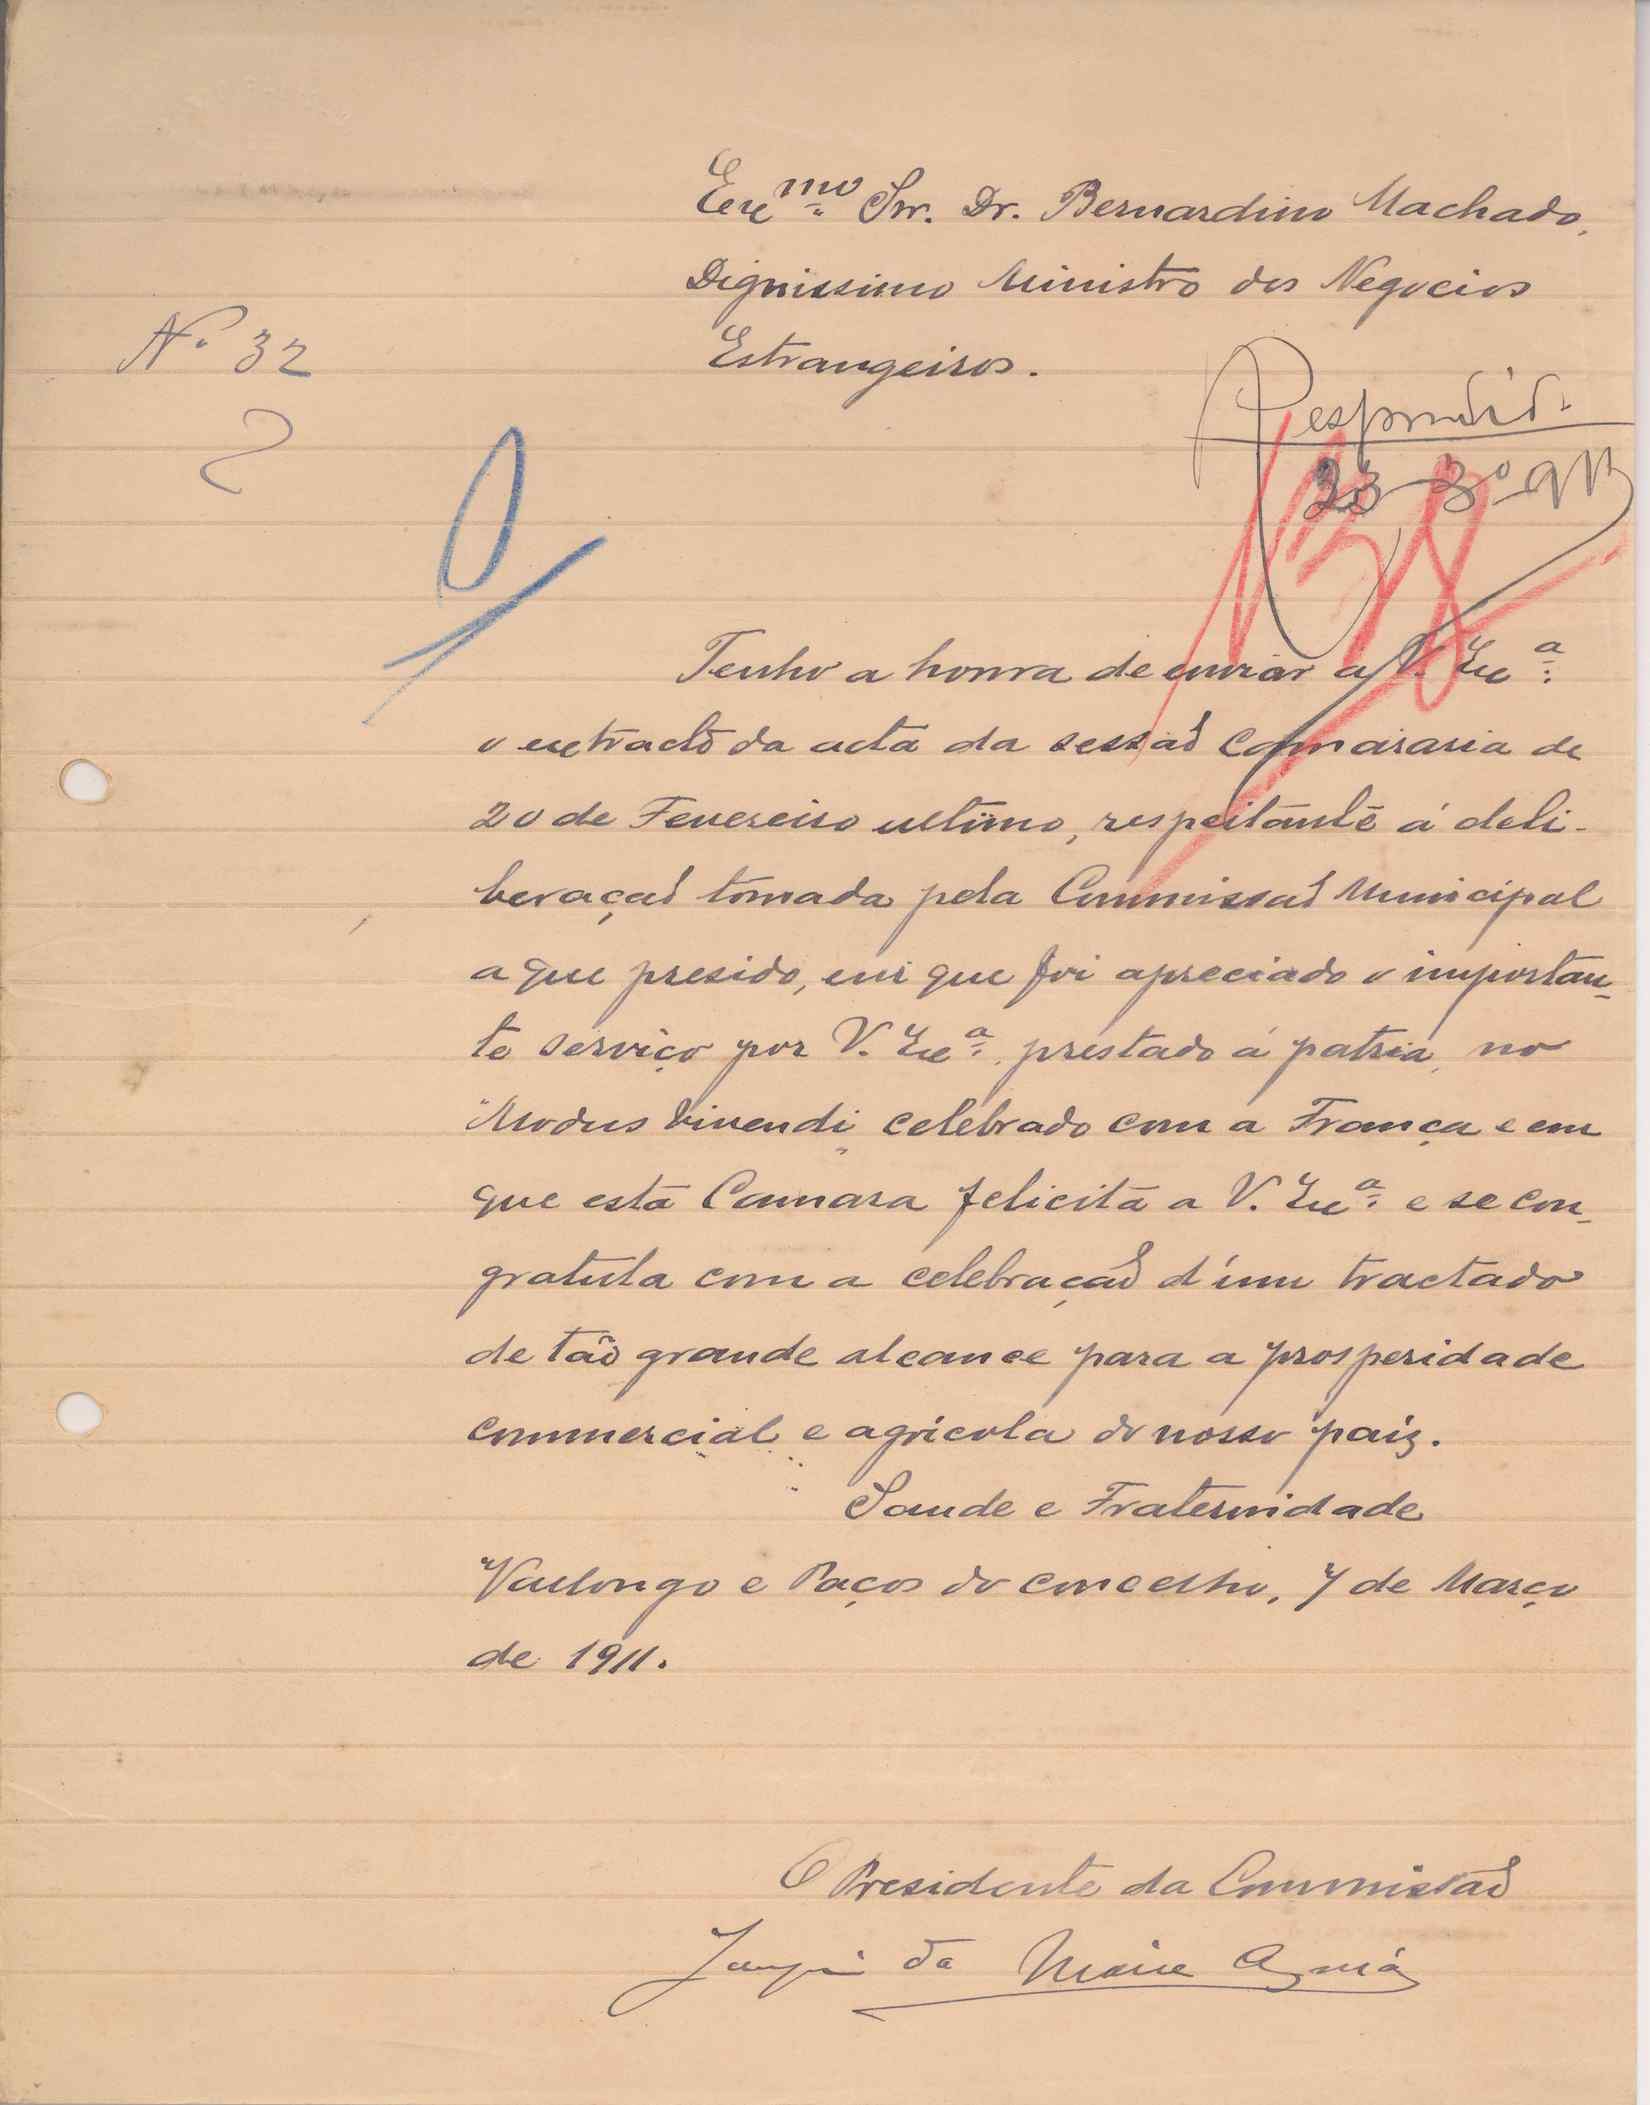 Exmo. Snr. Dr. Bernardino Machado,
Dignissimo Ministro dos Negocios
Estrangeiros.
Nº 32
Respondido
23-3º-911
Tenho a honra de enviar a V. Exa.
o extracto da acta da sessão camararia de
20 de Fevereiro ultimo, respeitante á deli-
beração tomada pela Commissão Municipal
a que presido, em que foi apreciado o importan-
te serviço por V. Exa. prestado á patria, no
"Modus vivendi" celebrado com a França e em
que esta Camara felicita a V. Exa. e se con-
gratula com a celebração d'um tractado
de tão grande alcance para a prosperidade
commercial e agricola do nosso paiz.
Saude e Fraternidade
Vallongo e Paços do concelho, 7 de Março
de 1911.
O Presidente da Commissão
da Maia Aguiar